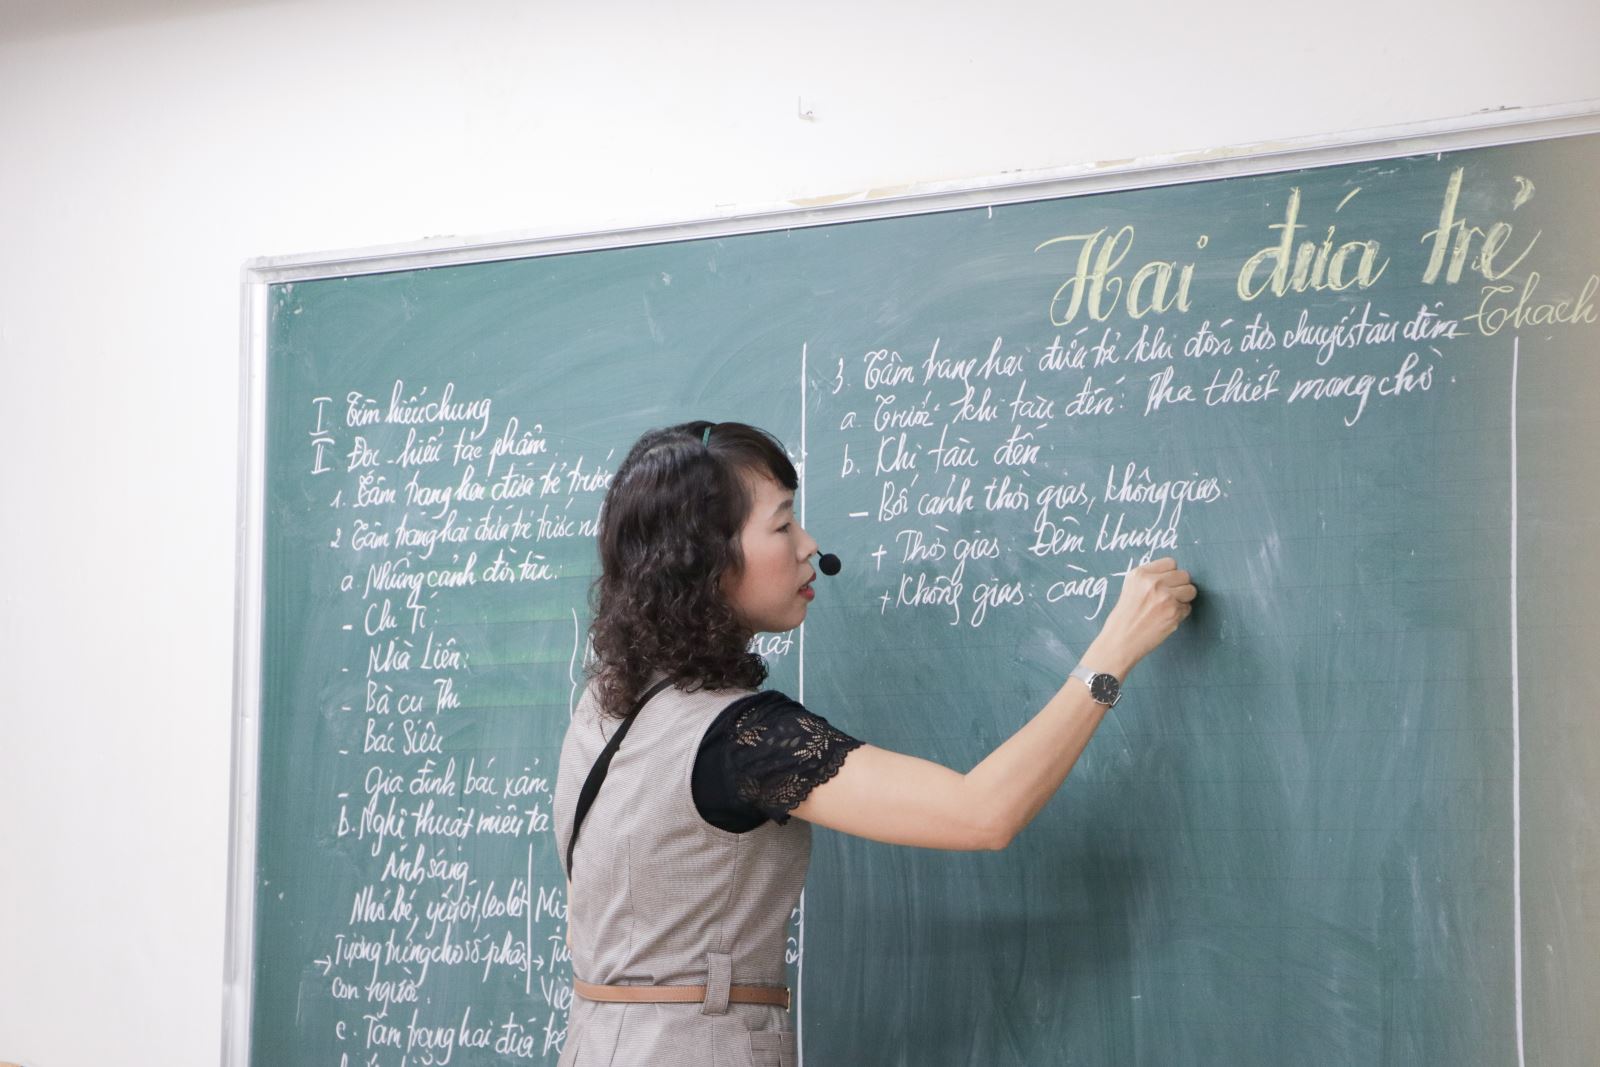 Hai đứa trẻ
Thạch
I Tìm hiểu chung
II Đọc - hiểu tác phẩm
1. Tâm trạng hai đứa trẻ trước
2 Tâm trạng hai đứa trẻ trước
a. Những cảnh đời tàn:
- Chị Tí:
- Nhà Liên:
- Bà cụ Thi
- Bác Siêu
- Gia đình bác xẩm
b. Nghệ thuật miêu tả
Ánh sáng
Nhỏ bé, yếu ớt, leo lét
→ Tượng trưng cho số phận
con người.
c. Tâm trạng hai đứa trẻ
3. Tâm trạng hai đứa trẻ khi đón đợi chuyến tàu đêm
a. Trước khi tàu đến: Tha thiết mong chờ.
b. Khi tàu đến:
- Bối cảnh thời gian, không gian:
+ Thời gian: Đêm khuya.
+ Không gian: càng